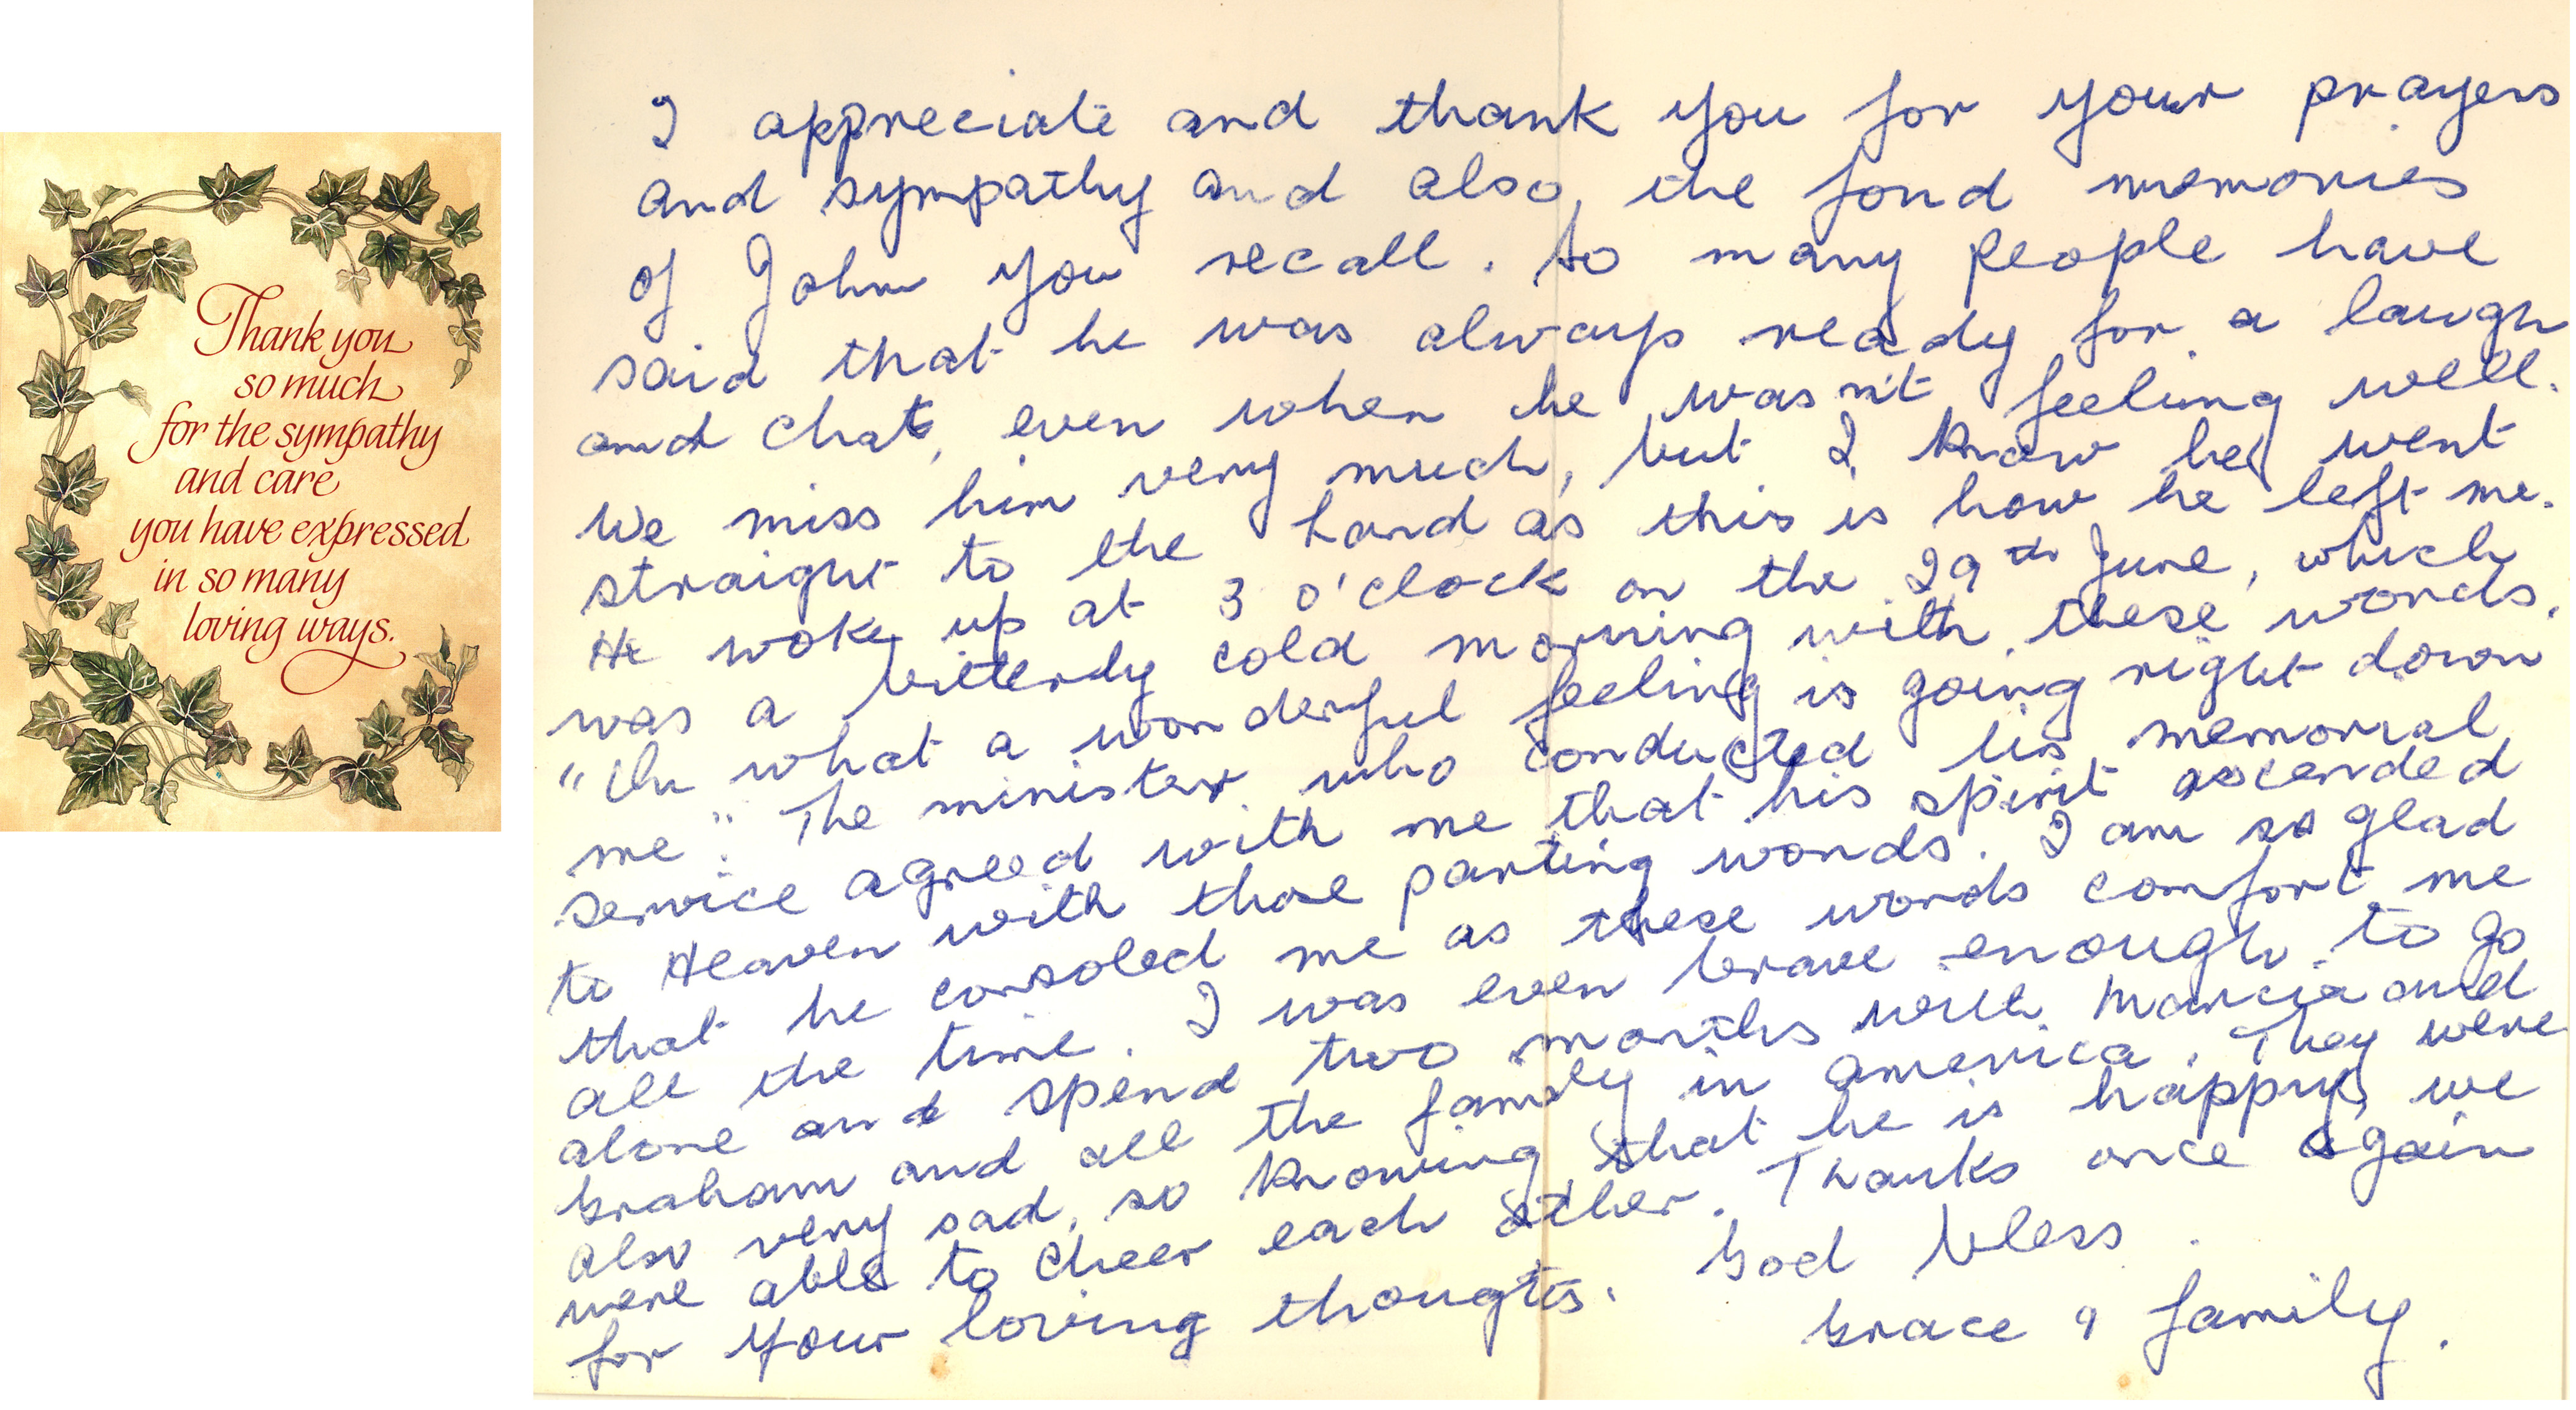 Thank you
so much
for the sympathy
and care
you have expressed
in so many
loving ways.
I appreciate and thank you for your prayers
and sympathy and also, the fond memories
of John you recall. So many people have
said that he was always ready for a laugh
and chat, even when he wasn't feeling well.
We miss him very much, but I know he went
straight to the Lord as this is how he left me.
He woke up at 3 o'clock on the 29th June, which
was a bitterly cold morning with these words,
"Oh what a wonderful feeling is going right down
me". The minister who conducted his memorial
service agreed with me that his spirit ascended
to Heaven with those parting words. I am so glad
that he consoled me as these words comfort me
all the time. I was even brave enough to go
alone and spend two months with Marcia and
Graham and all the family in America. They were
also very sad, so knowing that he is happy, we
were able to cheer each other. Thanks once again
for your loving thougts. God bless.
Grace & family.